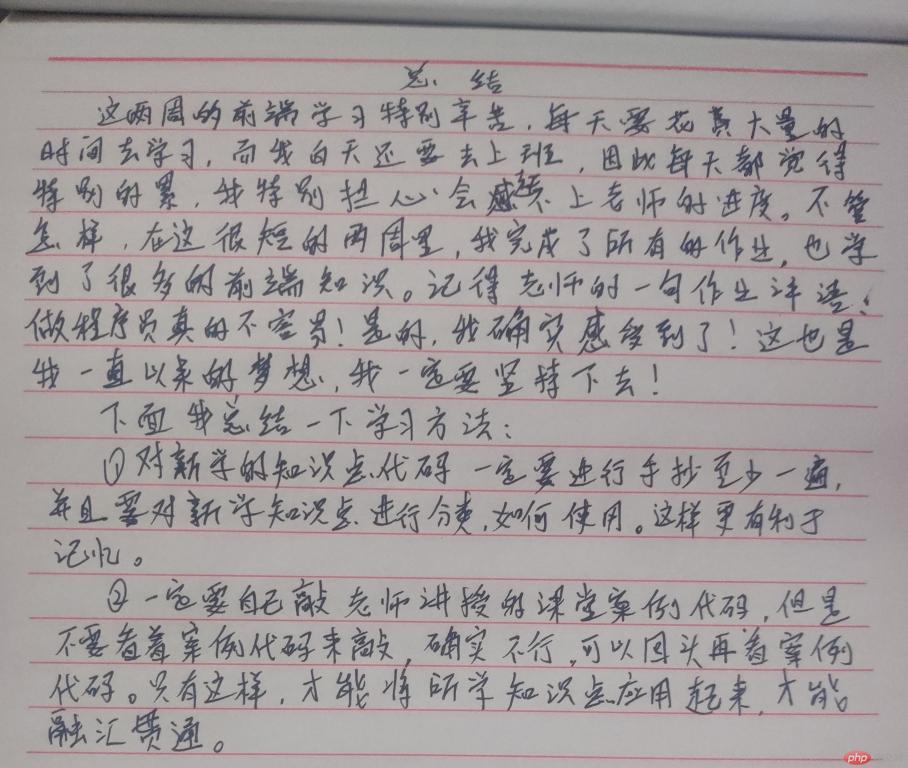 总结
这两周的前端学习特别辛苦,每天要花费大量的
时间去学习,而我白天还要去上班,因此每天都觉得
特别的累,我特别担心会跟不上老师的进度。不管
怎样,在这很短的两周里,我完成了所有的作业,也学
到了很多的前端知识。记得老师的一句作业评语:
做程序员真的不容易!是的,我确实感受到了!这也是
我一直以来的梦想,我一定要坚持下去!
下面我总结一下学习方法:
①对新学的知识点代码一定要进行手抄至少一遍,
并且要对新学知识点进行分类,如何使用。这样更有利于
记忆。
②一定要自己敲老师讲授的课堂案例代码,但是
不要看着案例代码来敲,确实不行,可以回头再看案例
代码。只有这样,才能将所学知识点应用起来,才能
融汇贯通。
php